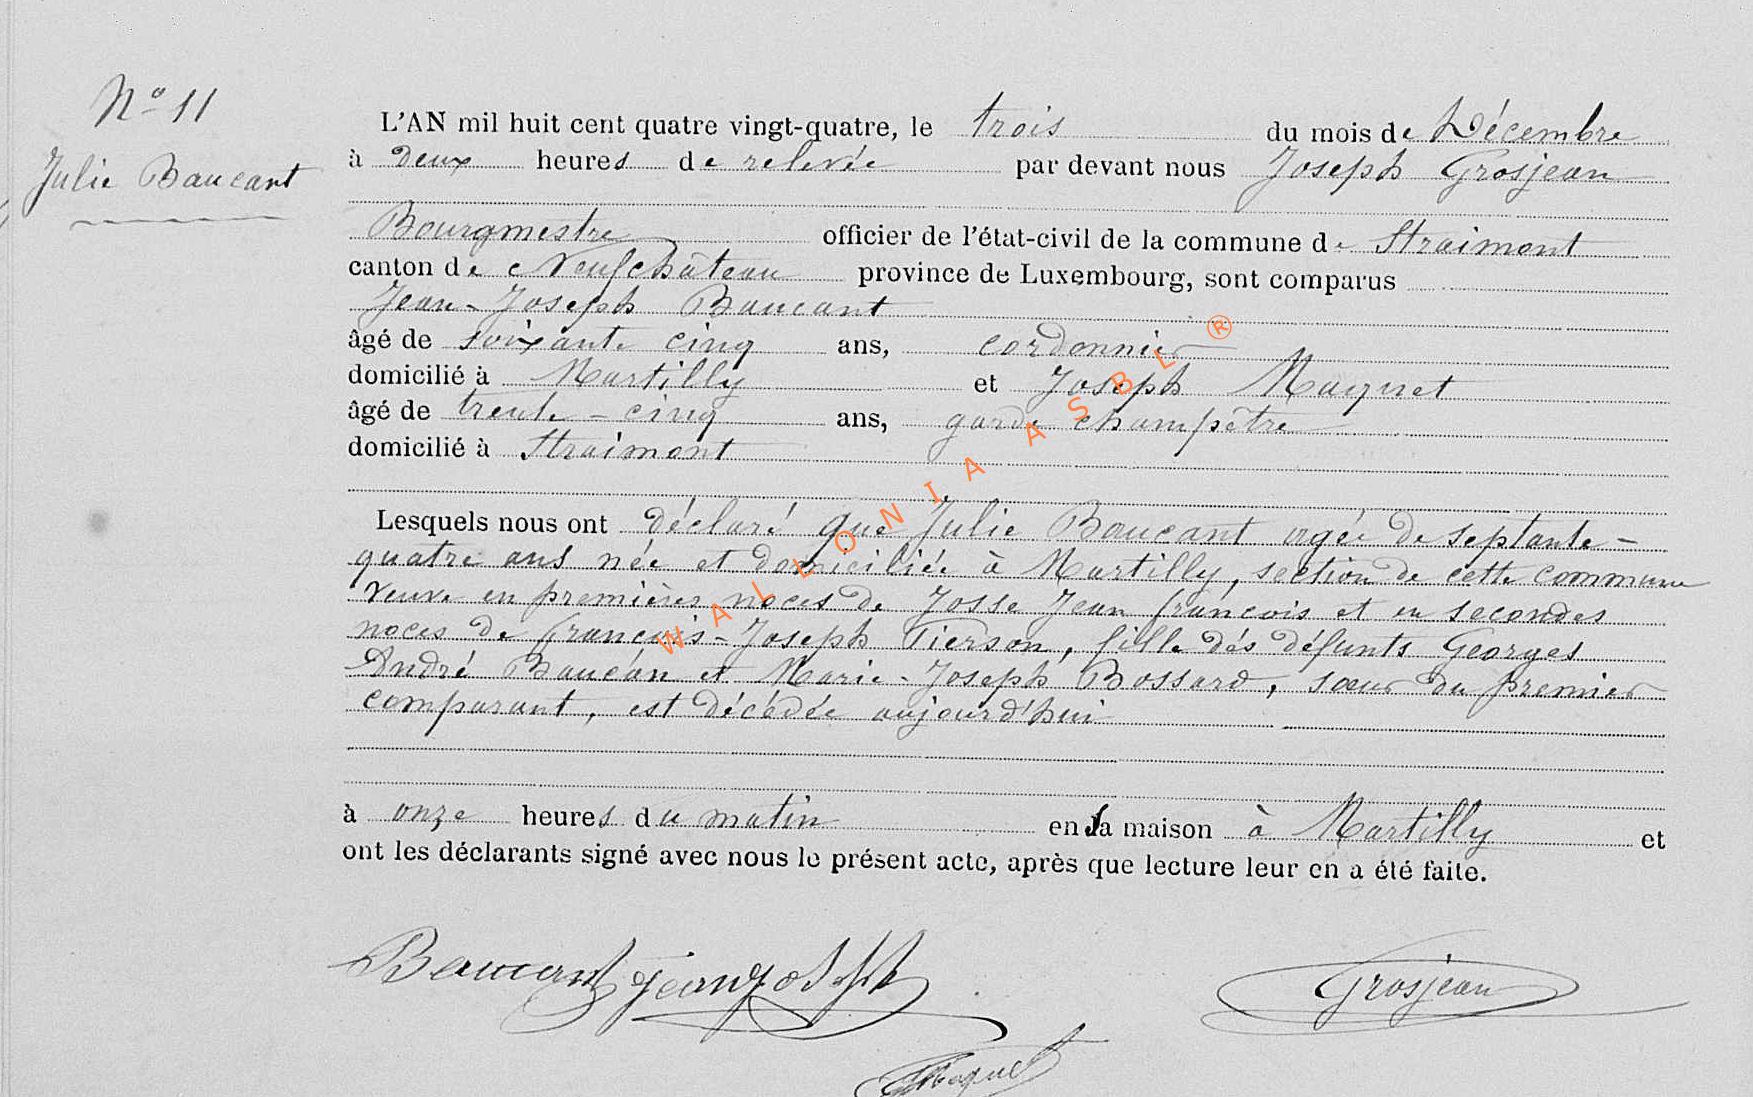 Nº 11
Julie Baucant
L'AN mil huit cent quatre vingt-quatre, le trois du mois de Décembre
à deux heures de relevée par devant nous Joseph Grosjean
Bourgmestre officier de l'état-civil de la commune de Straimont
canton de Neufchâteau province de Luxembourg, sont comparus
Jean-Joseph Baucant
âgé de soixante cinq ans, cordonnier
domicilié à Martilly et Joseph Maquet
âgé de trente-cinq ans, garde champêtre
domicilié à Straimont
Lesquels nous ont déclaré que Julie Baucant agée de septante-
quatre ans née et domiciliée à Martilly, section de cette commune
veuve en premières noces de Josse Jean françois et en secondes
noces de françois-Joseph Pierson, fille dés défunts Georges
André Baucan et Marie-Joseph Bossard, sœur du premier
comparant, est décédée aujourd'hui
à onze heures du matin en sa maison à Martilly et
ont les déclarants signé avec nous le présent acte, après que lecture leur en a été faite.
Baucant jean joseph
Grosjean
Maquet
WALLONIA ASBL ®